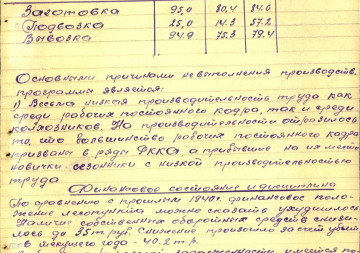 Заготовка 95,0 80,4 84.6
Подвозка 25,0 14.3 57.2
Вывозка 94,9 75.3 79.4
Основными причинами невыполнения производств.
программы является:
1) Весьма низкая производительность труда как
среди рабочих постоянного кадра, так и среди
колхозников. На производительности отразилось
то, что большинство рабочих постоянного кадра
призваны в ряды РККА, а прибывшие на их место
новички - сезонники с низкой производительностью
труда.
Финансовое состояние и дисциплина
По сравнению с прошлым 1940г. финансовое поло-
жение лесопункта можно сказать ухудшилось
Наличие собственных оборотных средств снизи-
лось до 35 т. руб. Снижение произошло за счет убыт-
ков текущего года - 40.2 т.р.
задолженности имеется по